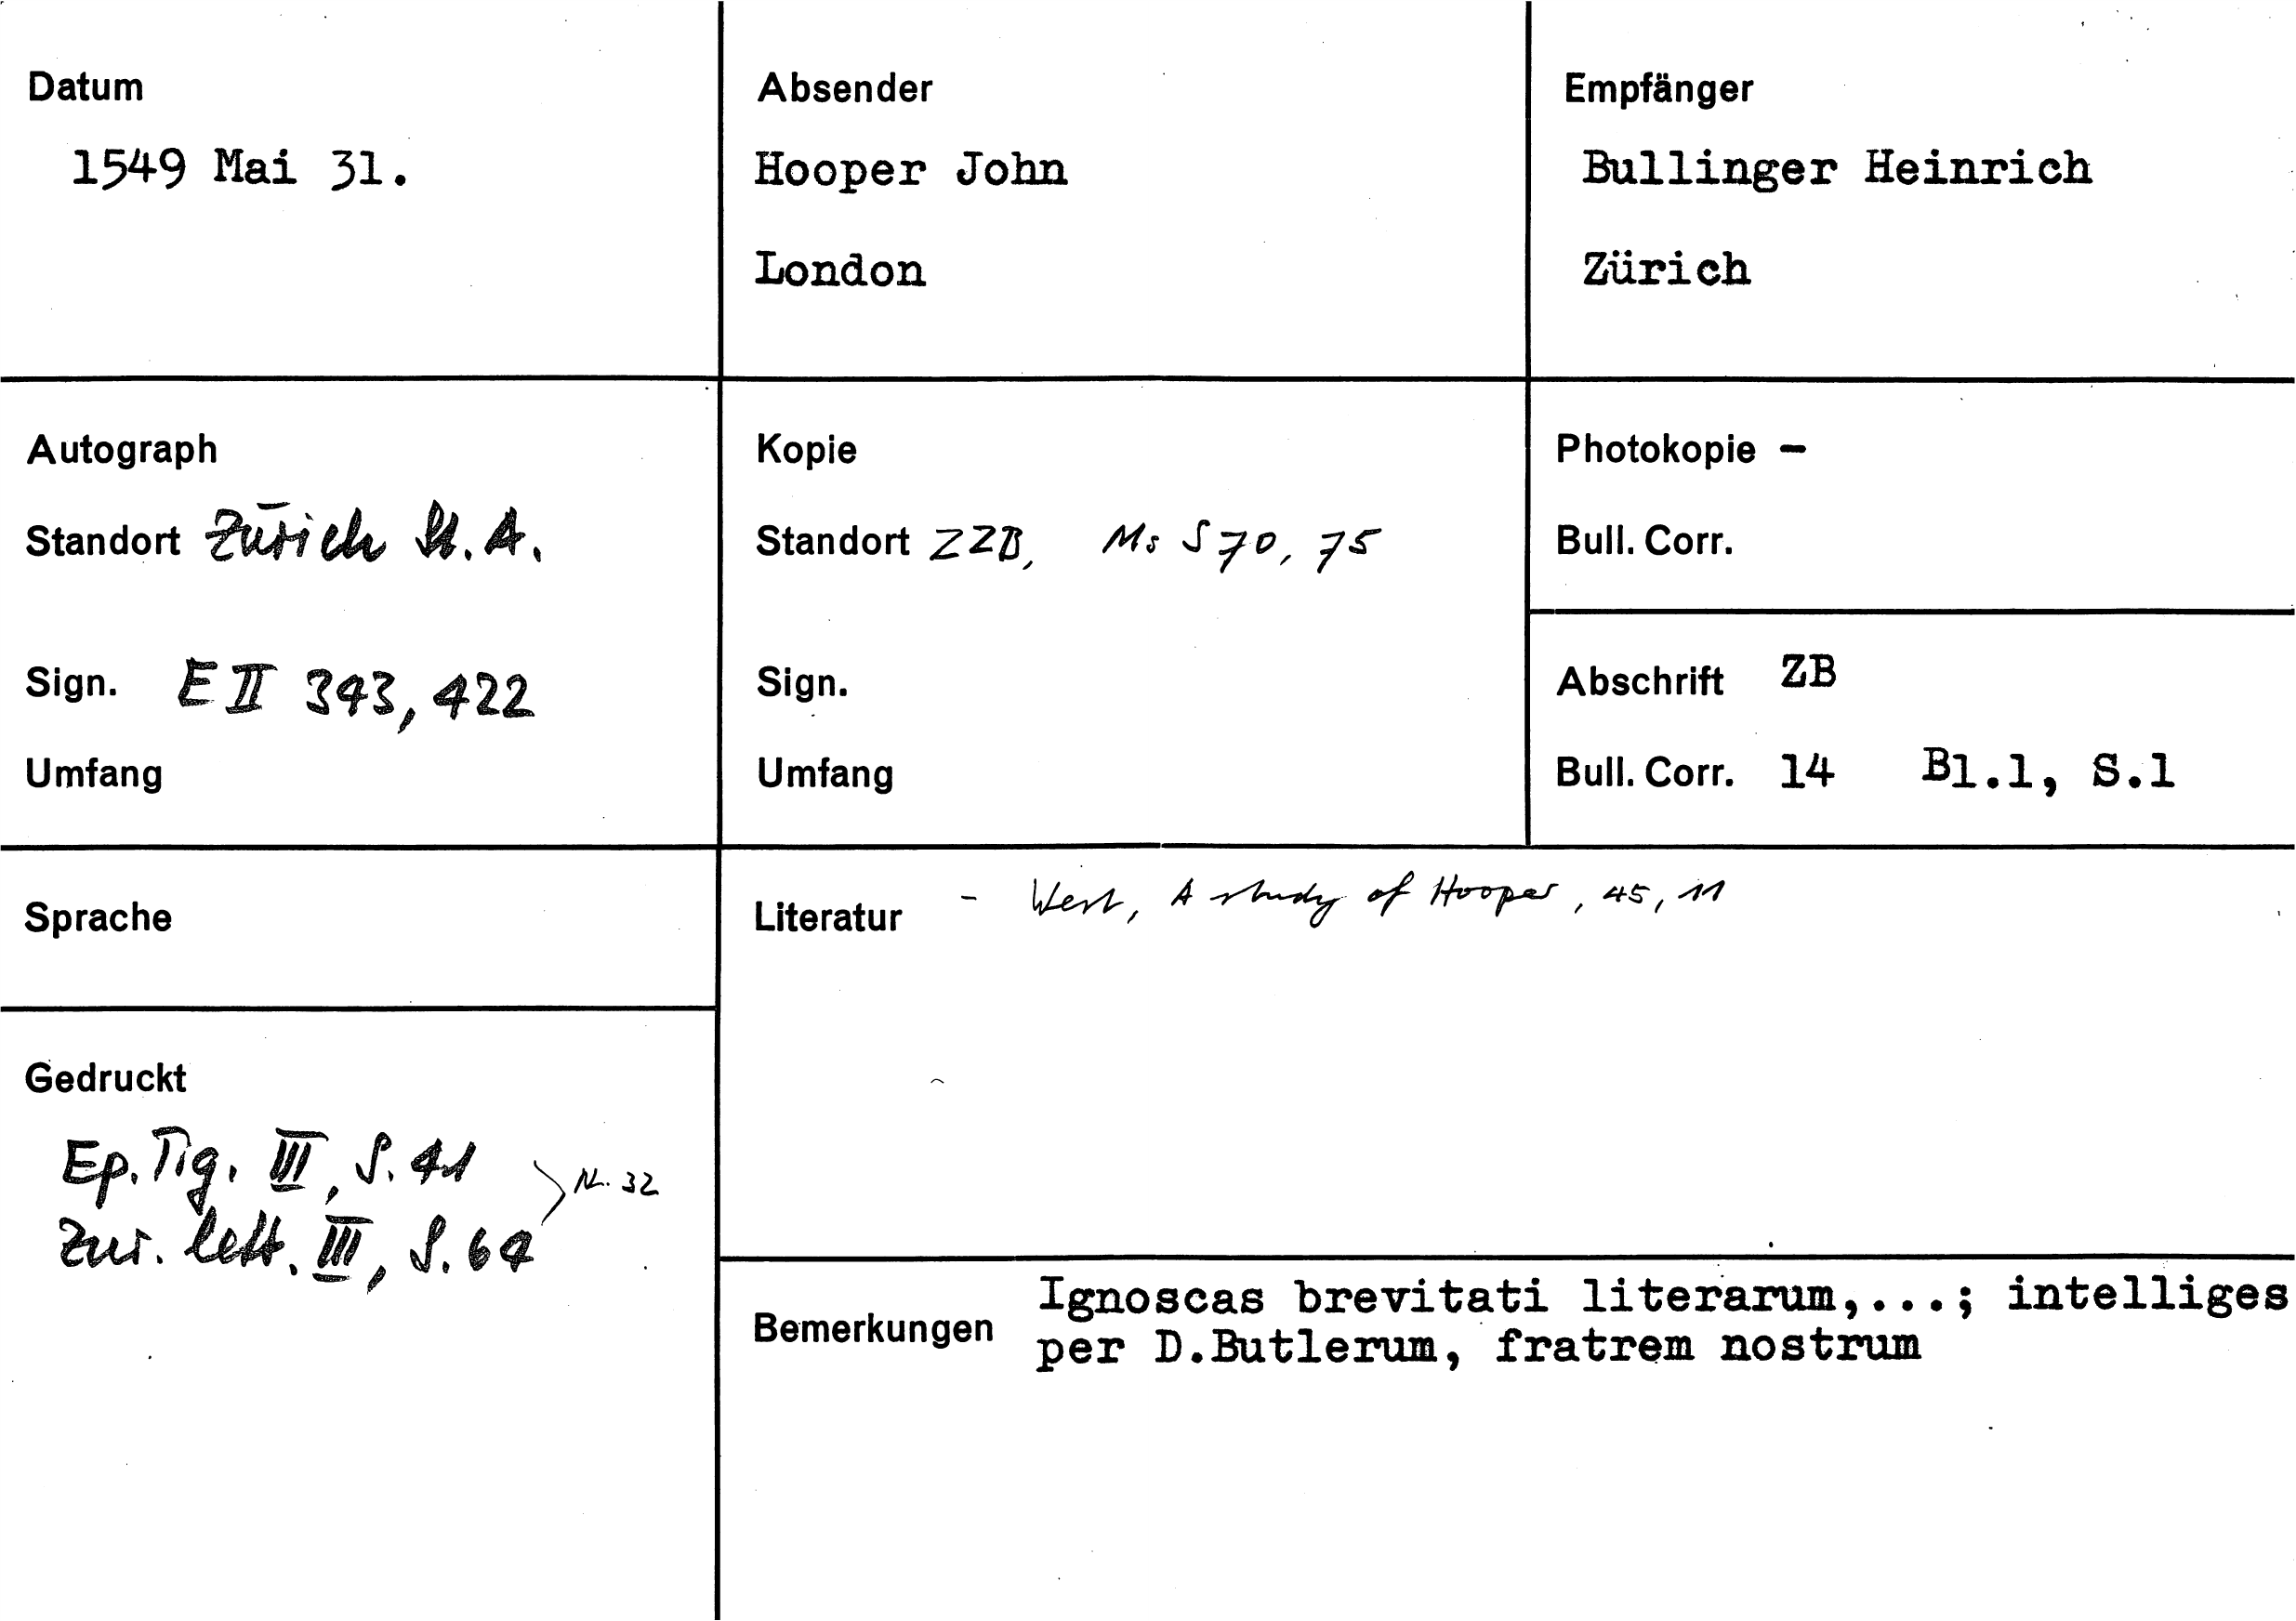 Datum
1549 Mai 31.
Absender
Hooper John
London
Empfänger
Bullinger Heinrich
Zürich
Autograph
Standort Zürich St. A.
Sign. E II 343, 422
Umfang
Kopie
Standort ZZB, Ms S 70, 75
Sign.
Umfang
Photokopie -
Bull. Corr.
Abschrift ZB
Bull. Corr. 14 Bl.1, S.1
Sprache
Literatur - West, A study of Hooper, 45, 11
Gedruckt
Ep. Tig. III, S. 41
Zur. lett. III, S. 64
Nr. 32
Bemerkungen
Ignoscas brevitati literarum,...; intelliges
per D.Butlerum, fratrem nostrum